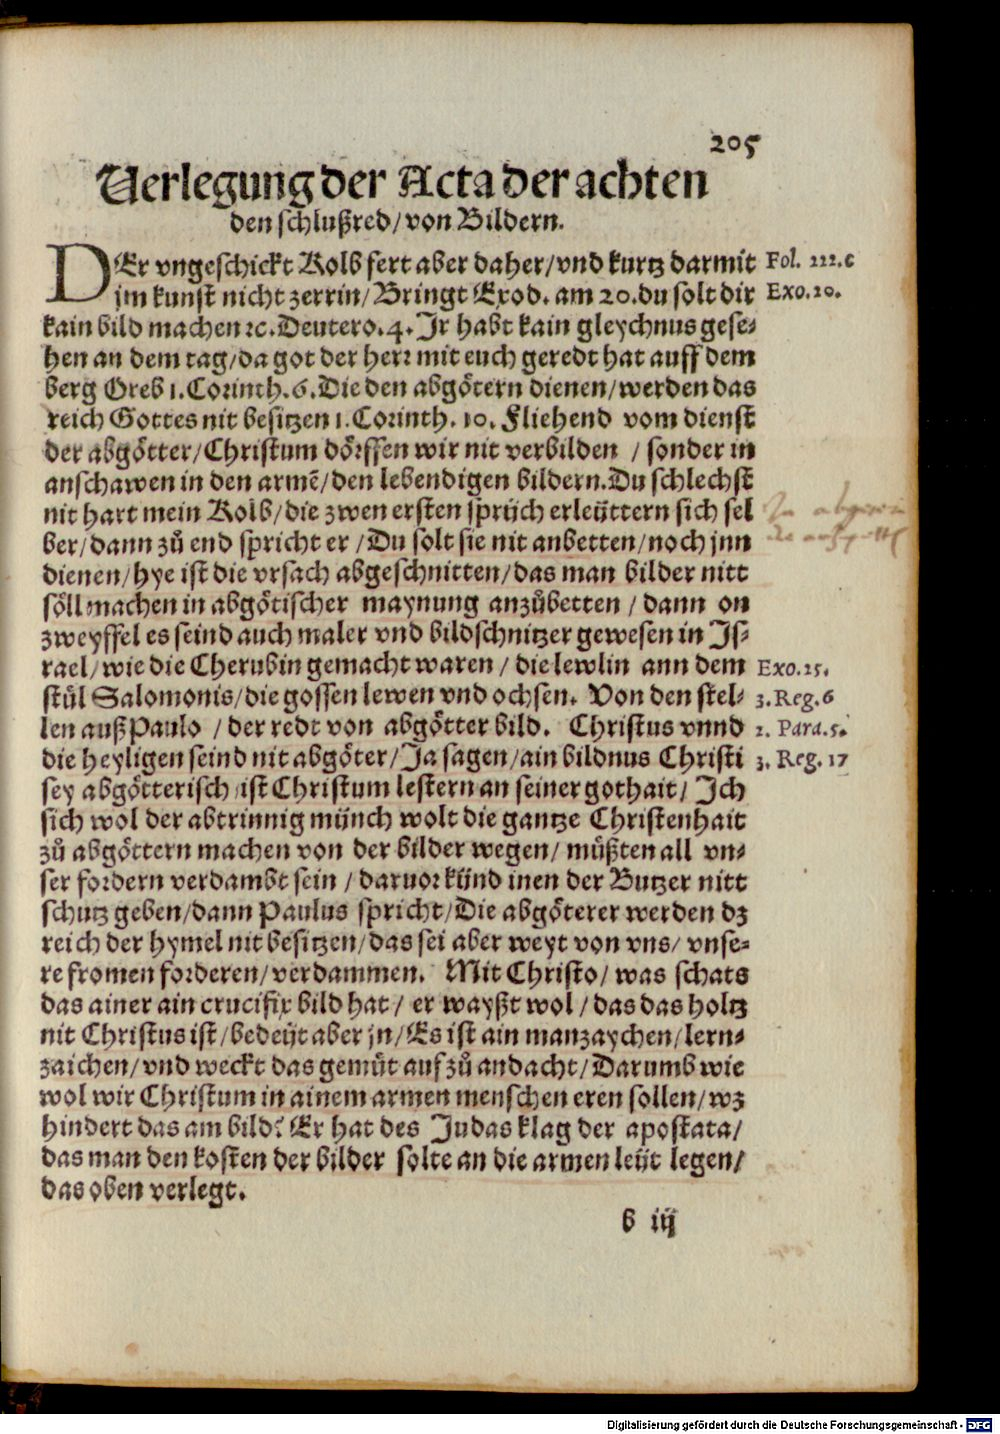 205
Verlegung der Acta der achten
den schlußred/von Bildern.
DEr vngeschickt Kolb fert aber daher/vnd kurtz darmit Fol. 111.c
jm kunst nicht zerrin/Bringt Exod. am 20.du solt dir Exo.20.
kain bild machen ꝛc.Deutero.4.Jr habt kain gleychnus gese⸗
hen an dem tag/da got der herꝛ mit euch geredt hat auff dem
berg Oreb 1.Corinth.6.Die den abgöttern dienen/werden das
reich Gottes nit besitzen 1.Corinth. 10. Fliehend vom dienst
der abgötter/Christum dörffen wir nit verbilden / sonder in
anschawen in den armē/den lebendigen bildern.Du schlechst
nit hart mein Kolb/die zwen ersten sprüch erleüttern sich sel
ber/dann zů end spricht er/Du solt sie nit anbetten/noch jnn
dienen/hye ist die vrsach abgeschnitten/das man bilder nitt
söll machen in abgötischer maynung anzůbetten / dann on
zweyffel es seind auch maler vnd bildschnitzer gewesen in Js⸗
rael/wie die Cherubin gemacht waren / die lewlin ann dem Exo.25.
stůl Salomonis/die gossen lewen vnd ochsen. Von den stel⸗ 3.Reg.6
len auß Paulo / der redt von abgötter bild. Christus vnnd 2. Para.5.
die heyligen seind nit abgöter/Ja sagen/ain bildnus Christi 3. Reg. 17
sey abgötterisch ist Christum lestern an seiner gothait/ Jch
sich wol der abtrinnig münch wolt die gantze Christenhait
zů abgöttern machen von der bilder wegen/ müßten all vn⸗
ser fordern verdambt sein / daruor künd inen der Butzer nitt
schutz geben/dann Paulus spricht/Die abgöterer werden dz
reich der hymel nit besitzen/das sei aber weyt von vns/ vnse⸗
re fromen forderen/verdammen. Mit Christo/ was schats
das ainer ain crucifix bild hat/ er wayßt wol/das das holtz
nit Christus ist/bedeüt aber jn/Es ist ain manzaychen/lern⸗
zaichen/vnd weckt das gemüt auf zů andacht/Darumb wie
wol wir Christum in ainem armen menschen eren sollen/wz
hindert das am bild? Er hat des Judas klag der apostata/
das man den kosten der bilder solte an die armen leüt legen/
das oben verlegt.
b iij
Digitalisierung gefördert durch die Deutsche Forschungsgemeinschaft - DFG